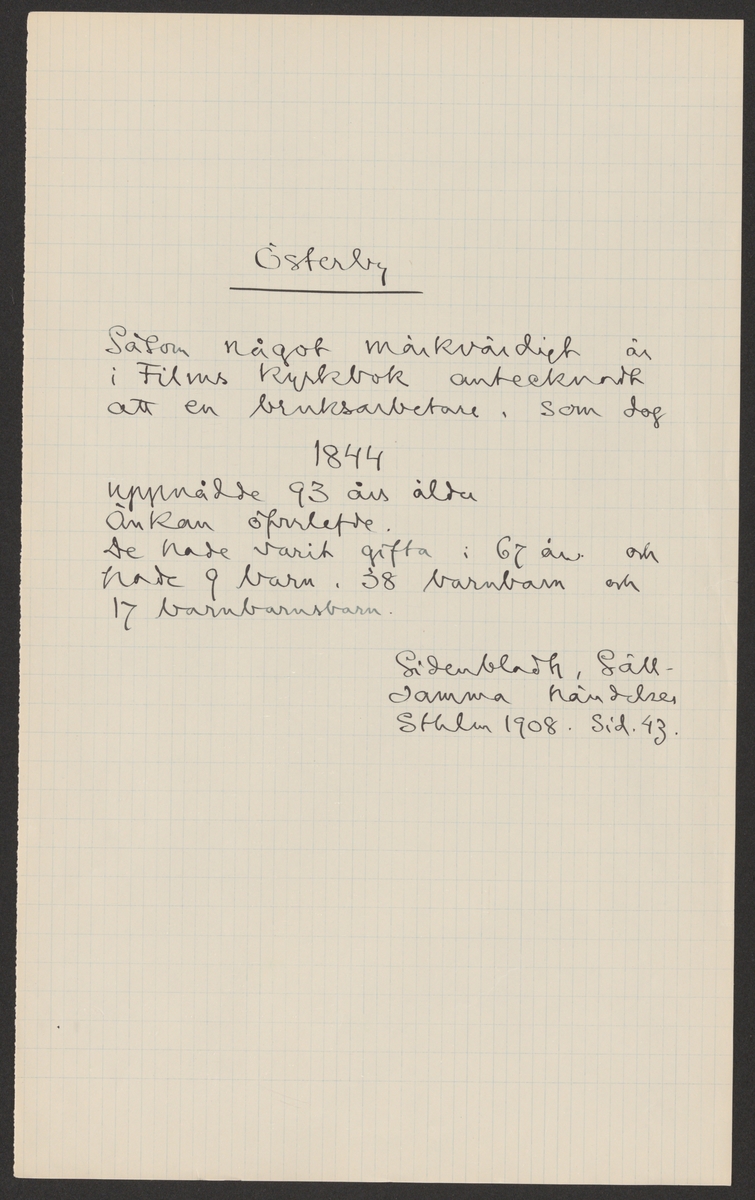 Österby
Såsom något märkvärdigt är
i Films kyrkbok antecknadt
att en bruksarbetare, som dog
1844
uppnådde 93 års ålder
Änkan öfverlefde.
De hade varit gifta i 67 år och
hade 9 barn, 38 barnbarn och
17 barnbarnsbarn.
Sidenbladh, Säll-
samma händelser
Sthlm 1908. Sid. 43.